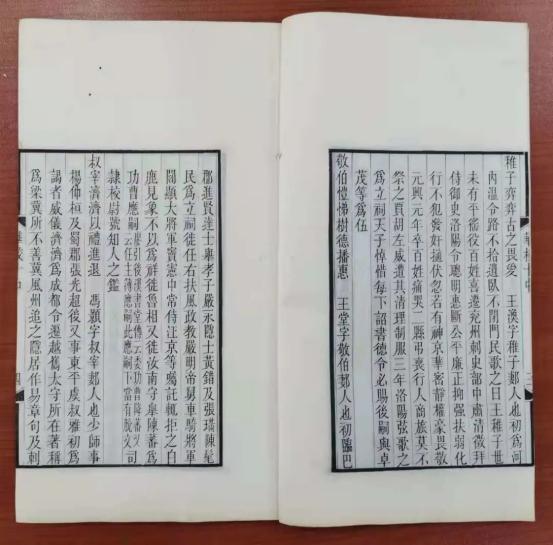 稚子弈弈古之畏愛 王渙字稚子郪人也初為河
內溫令路不拾遺臥不閉門民歌之曰王稚子世
未有平徭役百姓喜遷兗州刺史部中肅清徵拜
侍御史洛陽令聰明惠斷公平廉正抑强扶弱化
行不犯發奸擿伏忽若有神京華密靜權豪畏敬
元興元年卒百姓痛哭二縣弔喪行人商旅莫不
祭之賈胡左威遭其清理制服三年洛陽弦歌之
為立祠天子悼惜每下詔書德令必賜後嗣與卓
茂等為伍
敬伯愷悌樹德播惠 王堂字敬伯郪人也初臨巴
郡進賢達士舉孝子嚴永隱士黃錯及張璊陳髦
民為立祠徙任右扶風政教嚴明帝舅車騎將軍
閻顯大將軍竇憲中常侍江京等囑託輒拒之白
鹿見象不以為祥徙魯相又徙汝南守皋陳蕃為
功曹應嗣 引後漢書堂傳云委功曹陳蕃 云任主簿應嗣此應嗣下當有脫文 司
隸校尉號知人之鑑
叔宰濟濟以禮進退 馮顥字叔宰郪人也少師事
楊仲桓及蜀郡張光超後又事東平虞叔雅初為
謁者威儀濟濟為成都令遷越嶲太守所在著稱
為梁冀所不善冀風州追之隱居作易章句及刺
四